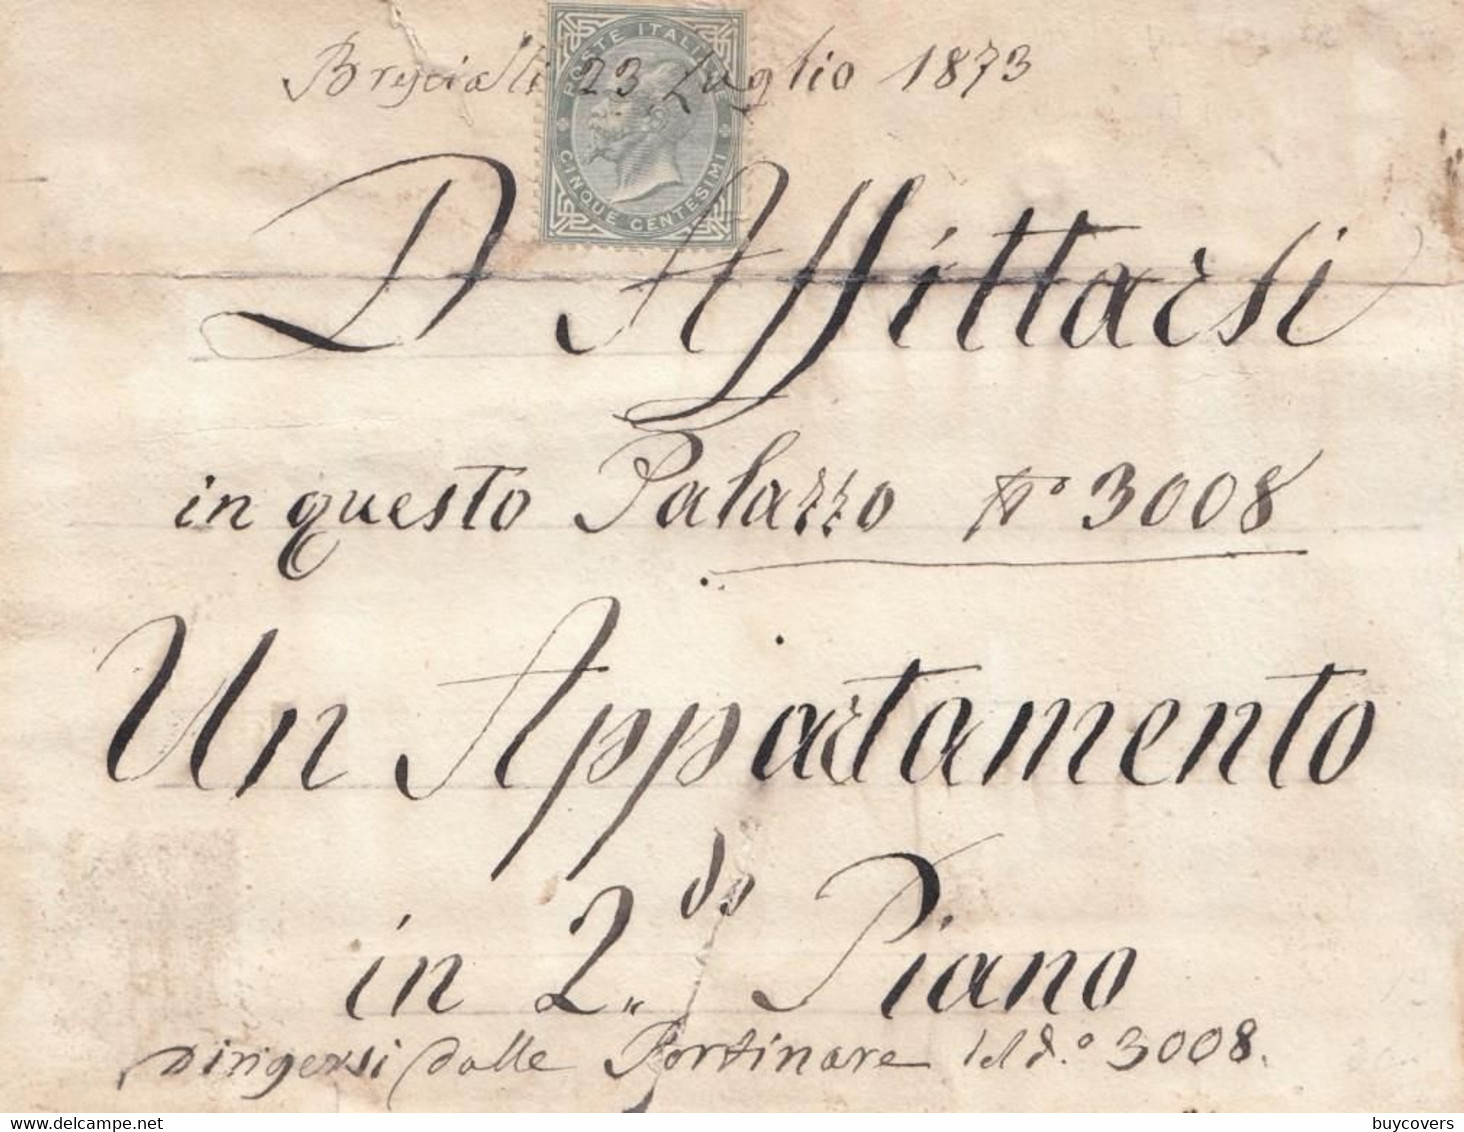 Brescia lì 23 Luglio 1873
POSTE ITALIANE
CINQUE CENTESIMI
D'Affittarsi
in questo Palazzo N° 3008
Un Appartamento
in 2.do Piano
Dirigersi dalle Portinare del d.° 3008.
buycovers